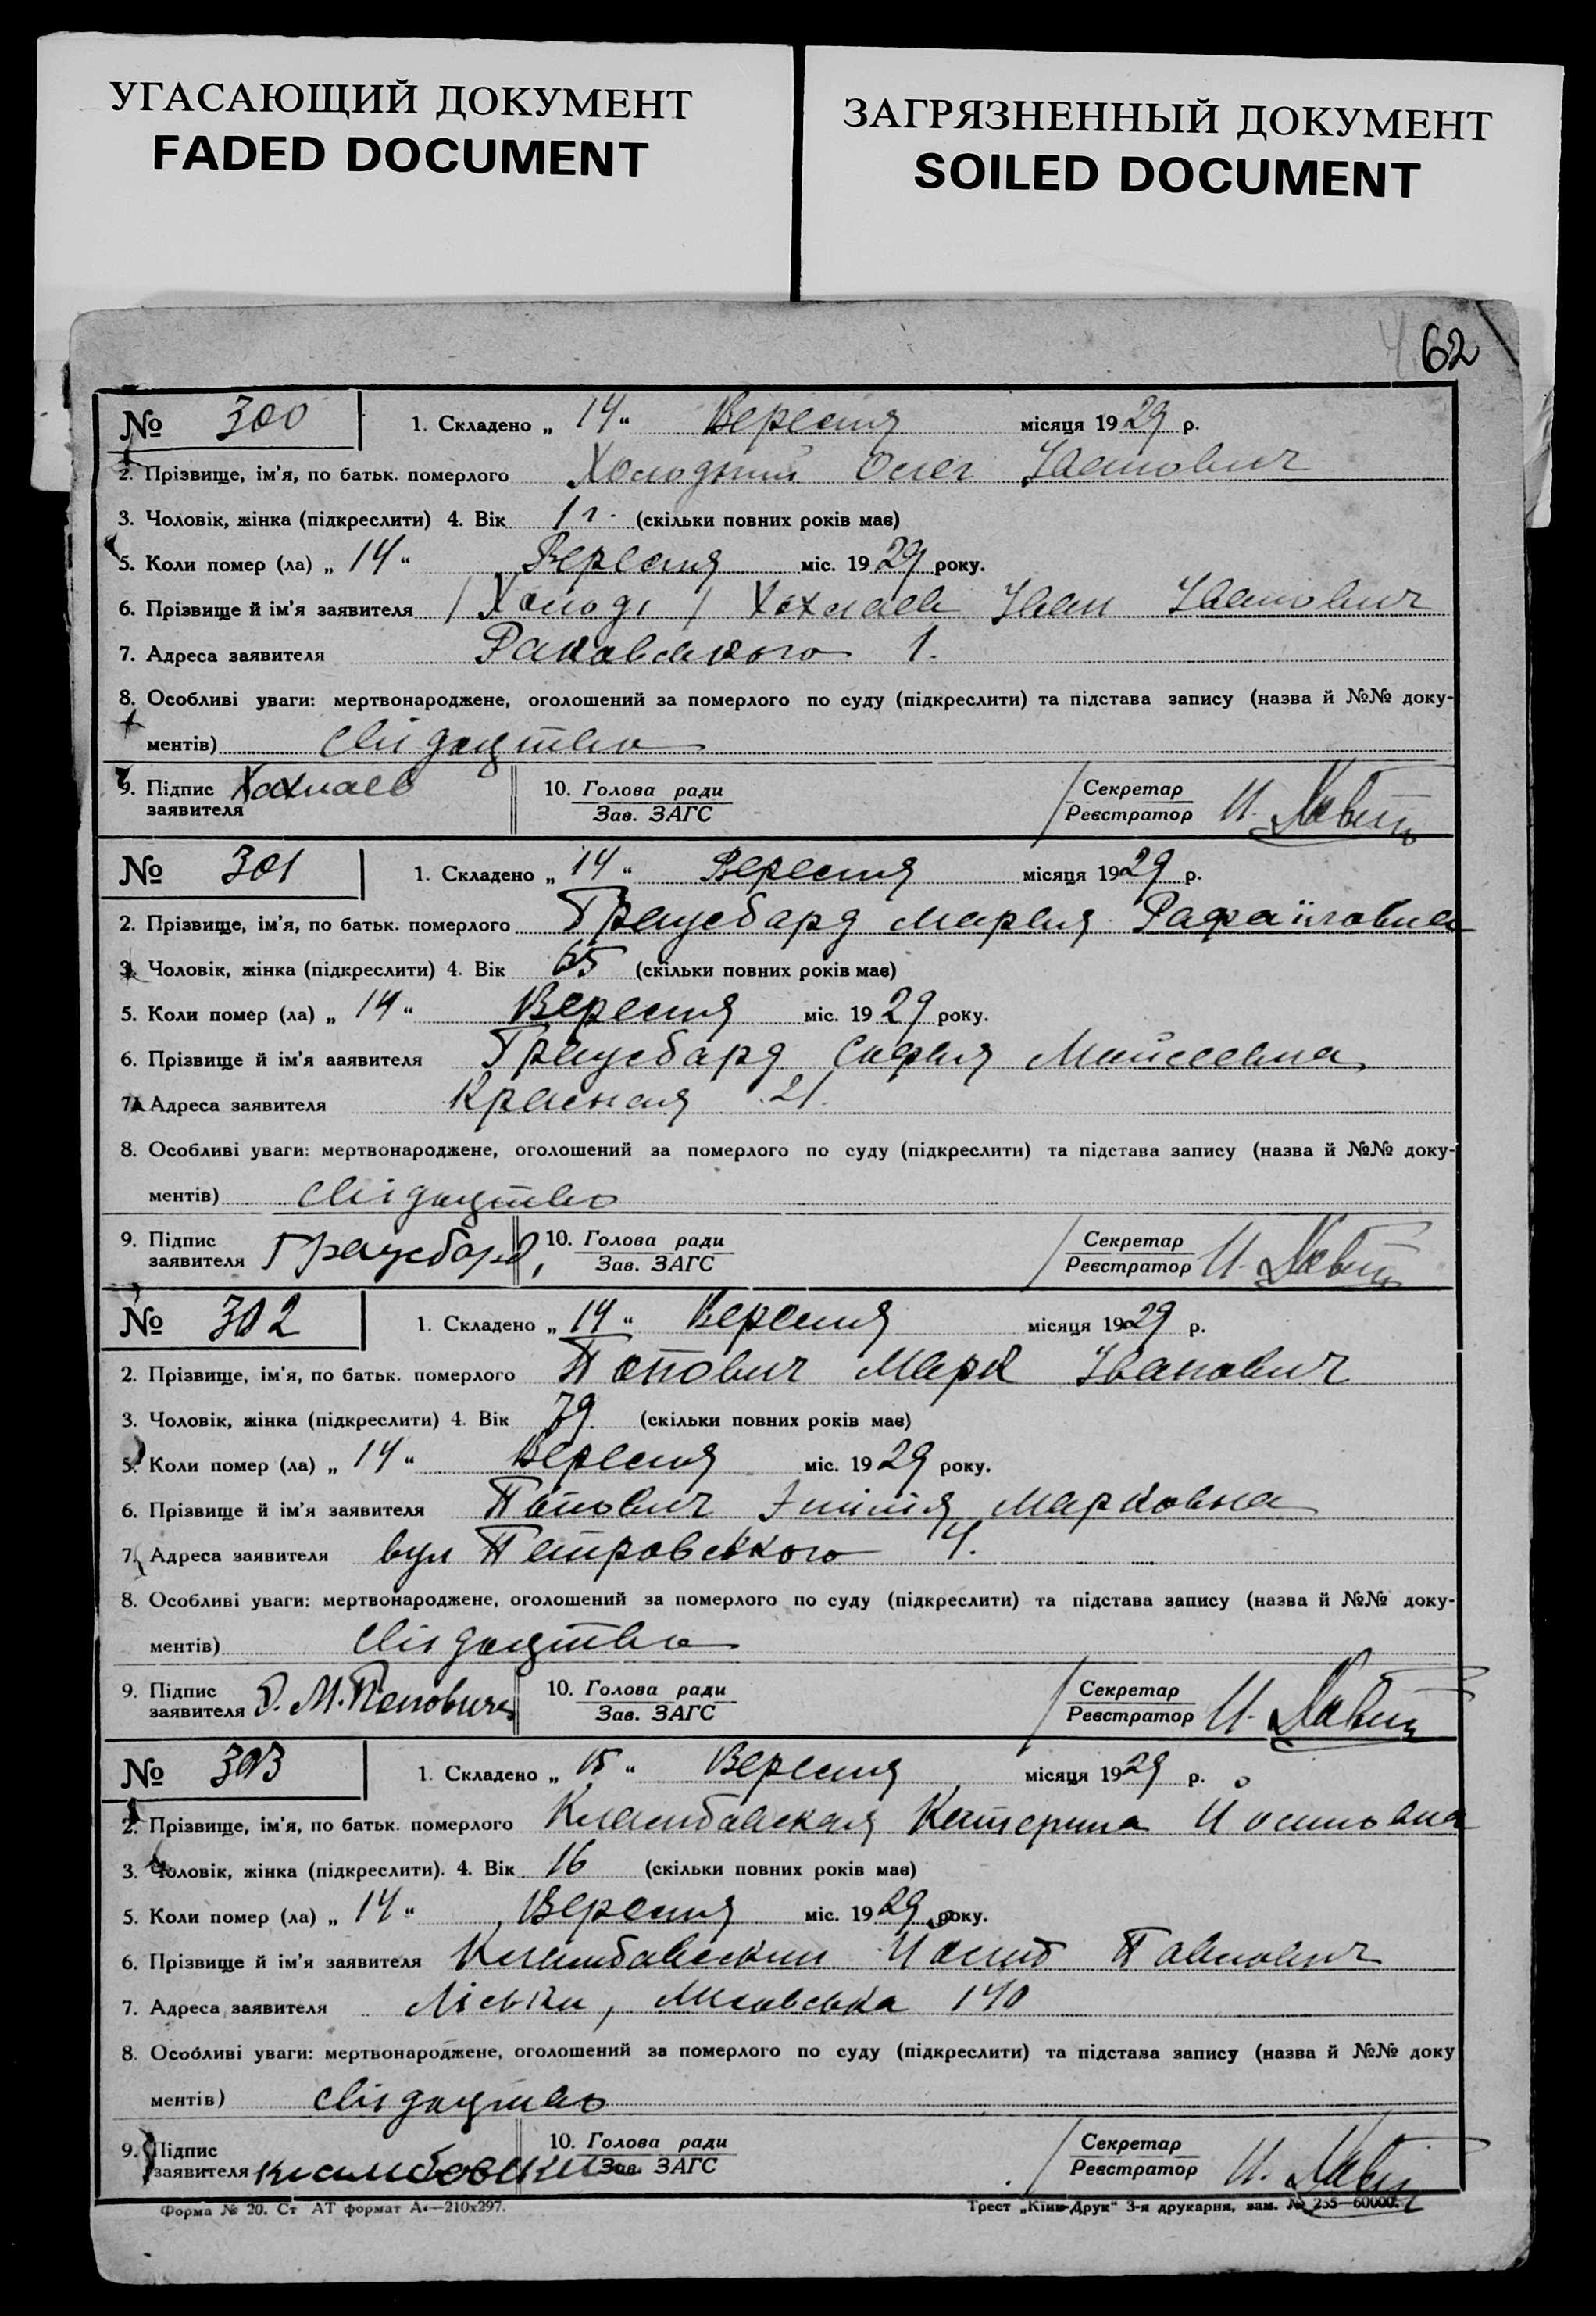 УГАСАЮЩИЙ ДОКУМЕНТ
FADED DOCUMENT
ЗАГРЯЗНЕННЫЙ ДОКУМЕНТ
SOILED DOCUMENT
62
№ 300 1. Складено „ 14 “ Вересня місяця 1929 р.
2. Прізвище, ім'я, по батьк. померлого Холодний Олег Іванович
3. Чоловік, жінка (підкреслити) 4. Вік 1 г. (скільки повних років має)
5. Коли помер (ла) „ 14 “ Вересня міс. 1929 року.
6. Прізвище й ім'я заявителя Хахлаев Іван Іванович
7. Адреса заявителя Раковського 1.
8. Особливі уваги: мертвонароджене, оголошений за померлого по суду (підкреслити) та підстава запису (назва й №№ доку-
ментів) свідоцтво
9. Підпис заявителя Хахлаев 10. Голова ради Зав. ЗАГС Секретар Реєстратор
№ 301 1. Складено „ 14 “ Вересня місяця 1929 р.
2. Прізвище, ім'я, по батьк. померлого Граусбард Мария Рафаїловна
3. Чоловік, жінка (підкреслити) 4. Вік 65 (скільки повних років має)
5. Коли помер (ла) „ 14 “ Вересня міс. 1929 року.
6. Прізвище й ім'я заявителя Граусбард София Мойсеевна
7. Адреса заявителя Красная 21.
8. Особливі уваги: мертвонароджене, оголошений за померлого по суду (підкреслити) та підстава запису (назва й №№ доку-
ментів) свідоцтво
9. Підпис заявителя Граусбард 10. Голова ради Зав. ЗАГС Секретар Реєстратор
№ 302 1. Складено „ 14 “ Вересня місяця 1929 р.
2. Прізвище, ім'я, по батьк. померлого Попович Марк Іванович
3. Чоловік, жінка (підкреслити) 4. Вік 79 (скільки повних років має)
5. Коли помер (ла) „ 14 “ Вересня міс. 1929 року.
6. Прізвище й ім'я заявителя Попович Эмілія Марковна
7. Адреса заявителя вул Петровського 4.
8. Особливі уваги: мертвонароджене, оголошений за померлого по суду (підкреслити) та підстава запису (назва й №№ доку-
ментів) свідоцтво
9. Підпис заявителя Э. М. Попович 10. Голова ради Зав. ЗАГС Секретар Реєстратор
№ 303 1. Складено „ 15 “ Вересня місяця 1929 р.
2. Прізвище, ім'я, по батьк. померлого Катерина Йосиповна
3. Чоловік, жінка (підкреслити). 4. Вік 16 (скільки повних років має)
5. Коли помер (ла) „ 14 “ Вересня міс. 1929 року.
6. Прізвище й ім'я заявителя Йосип Павлович
7. Адреса заявителя Ліськи, 140
8. Особливі уваги: мертвонароджене, оголошений за померлого по суду (підкреслити) та підстава запису (назва й №№ доку
ментів) свідоцтво
9. Підпис заявителя 10. Голова ради Зав. ЗАГС Секретар Реєстратор
Форма № 20. Ст АТ формат А4—210x297. Трест „Київ-Друк“ 3-я друкарня, зам. № 255—60000.